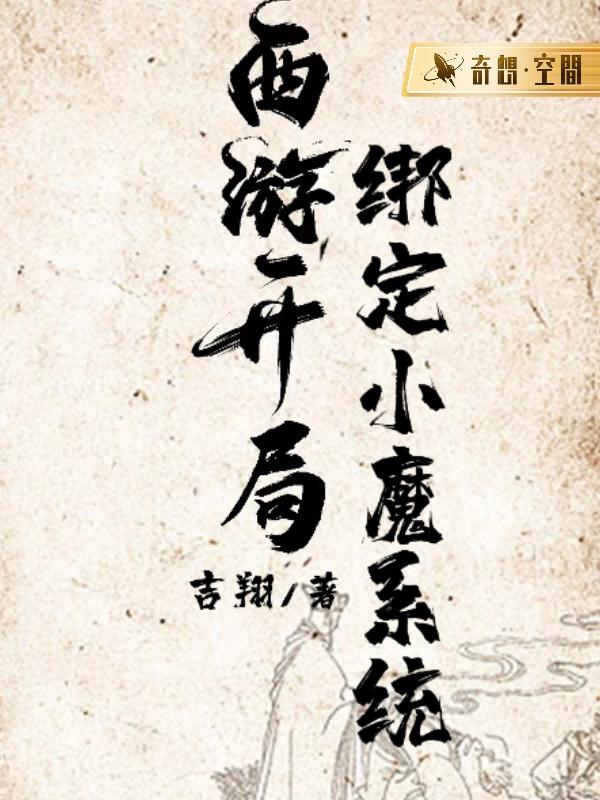 奇想·空間
西游开局
绑定小魔系统
吉翔/著